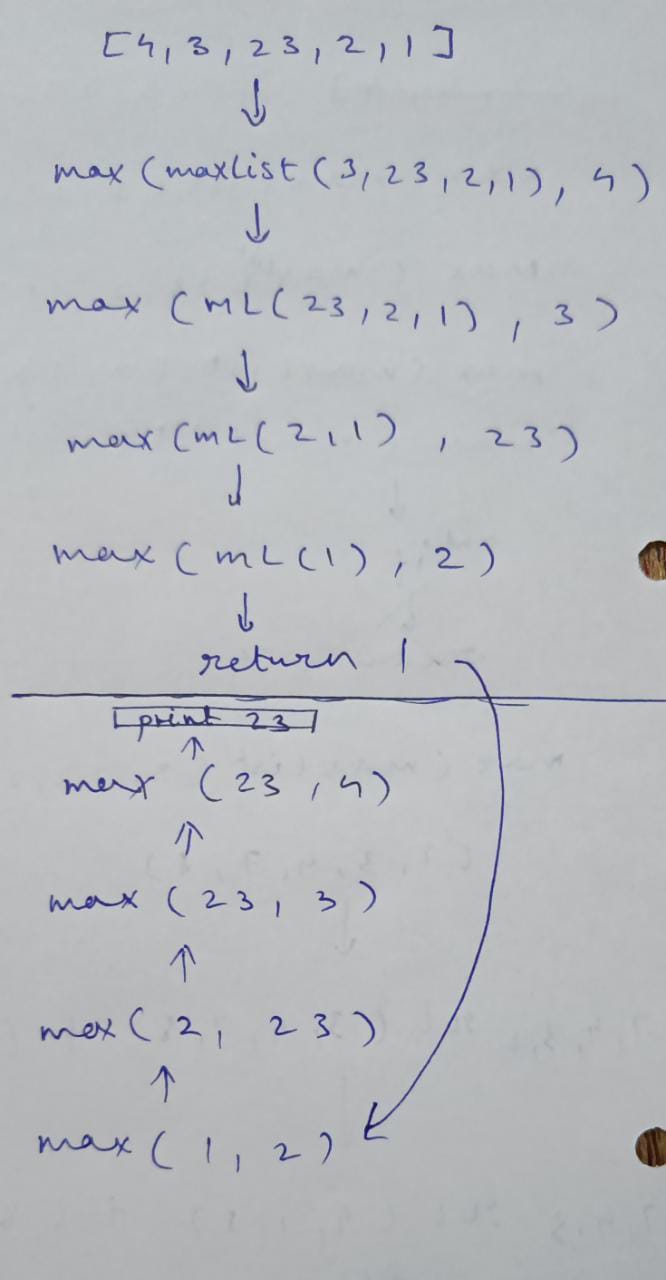 [4, 3, 23, 2, 1]
↓
max (maxList (3, 23, 2, 1), 4)
↓
max (mL (23, 2, 1), 3)
↓
max (mL (2, 1), 23)
↓
max (mL (1), 2)
↓
return 1
print 23
↑
max (23, 4)
↑
max (23, 3)
↑
max (2, 23)
↑
max (1, 2)